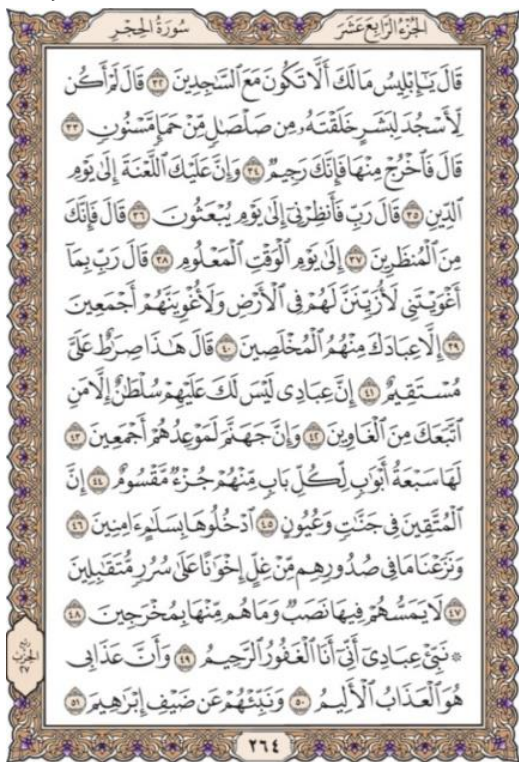 الجزء الرابع عشر
سورة الحجر
قَالَ يَـٰٓإِبْلِيسُ مَالَكَ أَلَّا تَكُونَ مَعَ ٱلسَّـٰجِدِينَ ٣٢ قَالَ لَمْ أَكُن
لِّأَسْجُدَ لِبَشَرٍ خَلَقْتَهُۥ مِن صَلْصَـٰلٍ مِّنْ حَمَإٍ مَّسْنُونٍ ٣٣
قَالَ فَٱخْرُجْ مِنْهَا فَإِنَّكَ رَجِيمٌ ٣٤ وَإِنَّ عَلَيْكَ ٱللَّعْنَةَ إِلَىٰ يَوْمِ
ٱلدِّينِ ٣٥ قَالَ رَبِّ فَأَنظِرْنِىٓ إِلَىٰ يَوْمِ يُبْعَثُونَ ٣٦ قَالَ فَإِنَّكَ
مِنَ ٱلْمُنظَرِينَ ٣٧ إِلَىٰ يَوْمِ ٱلْوَقْتِ ٱلْمَعْلُومِ ٣٨ قَالَ رَبِّ بِمَآ
أَغْوَيْتَنِى لَأُزَيِّنَنَّ لَهُمْ فِى ٱلْأَرْضِ وَلَأُغْوِيَنَّهُمْ أَجْمَعِينَ
٣٩ إِلَّا عِبَادَكَ مِنْهُمُ ٱلْمُخْلَصِينَ ٤٠ قَالَ هَـٰذَا صِرَٰطٌ عَلَىَّ
مُسْتَقِيمٌ ٤١ إِنَّ عِبَادِى لَيْسَ لَكَ عَلَيْهِمْ سُلْطَـٰنٌ إِلَّا مَنِ
ٱتَّبَعَكَ مِنَ ٱلْغَاوِينَ ٤٢ وَإِنَّ جَهَنَّمَ لَمَوْعِدُهُمْ أَجْمَعِينَ ٤٣
لَهَا سَبْعَةُ أَبْوَٰبٍ لِّكُلِّ بَابٍ مِّنْهُمْ جُزْءٌ مَّقْسُومٌ ٤٤ إِنَّ
ٱلْمُتَّقِينَ فِى جَنَّـٰتٍ وَعُيُونٍ ٤٥ ٱدْخُلُوهَا بِسَلَـٰمٍ ءَامِنِينَ ٤٦
وَنَزَعْنَا مَا فِى صُدُورِهِم مِّنْ غِلٍّ إِخْوَٰنًا عَلَىٰ سُرُرٍ مُّتَقَـٰبِلِينَ
٤٧ لَا يَمَسُّهُمْ فِيهَا نَصَبٌ وَمَا هُم مِّنْهَا بِمُخْرَجِينَ ٤٨
۞ نَبِّئْ عِبَادِىٓ أَنِّىٓ أَنَا ٱلْغَفُورُ ٱلرَّحِيمُ ٤٩ وَأَنَّ عَذَابِى
هُوَ ٱلْعَذَابُ ٱلْأَلِيمُ ٥٠ وَنَبِّئْهُمْ عَن ضَيْفِ إِبْرَٰهِيمَ ٥١
ربع
الحزب
٢٧
٢٦٤